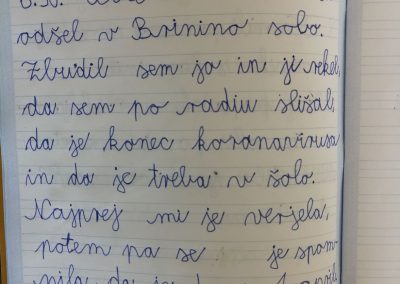 odšel v Brinino sobo.
Zbudil sem jo in ji rekel,
da sem po radiu slišal,
da je konec koronavirusa
in da je treba v šolo.
Najprej mi je verjela,
potem pa se je spom-
nila, da je